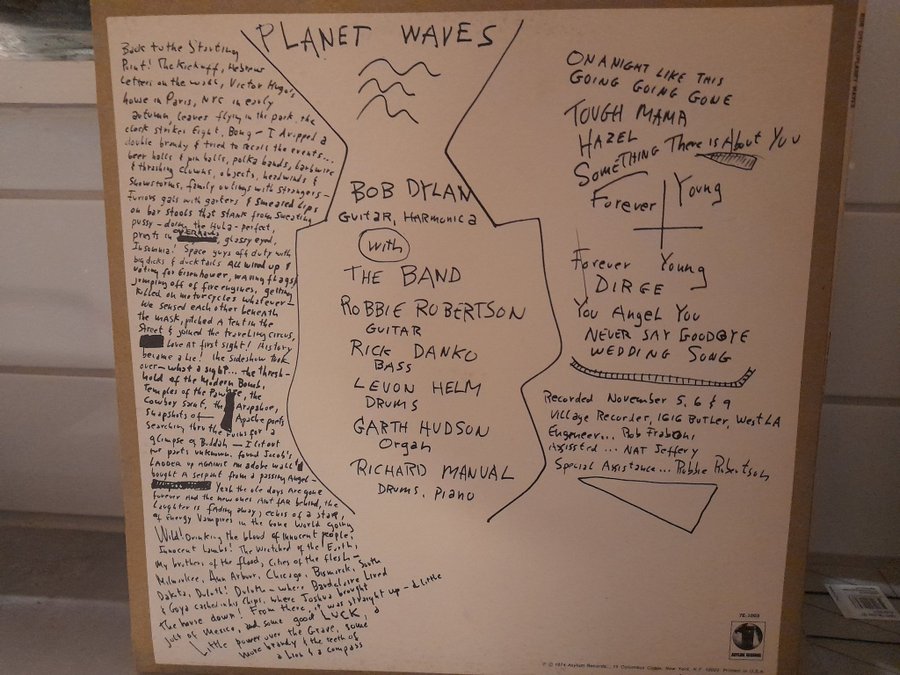 PLANET WAVES
Back to the Starting
Point! The Kickoff, Hebrew
Letters on the wall, Victor Hugo's
house in Paris, NYC in early
autumn, leaves flying in the park, the
clock strikes Eight, Bong - I dropped a
double brandy & tried to recall the events...
beer halls & pin balls, polka bands, barbwire
& thrashing clowns, objects, headwinds &
Snowstorms, family outings with strangers -
Furious gals with garters & smeared Lips
on bar stools that stank from sweating
pussy - doing the Hula - perfect,
priests in overhauls, glassy eyed,
Insomnia! Space guys off duty with
big dicks & ducktails All wired up &
voting for Eisenhower, waving flags &
jumping off of fire engines, getting
killed on motorcycles whatever -
We sensed each other beneath
the mask, pitched a tent in the
Street & joined the traveling circus,
Love at first sight! History
became a Lie! the sideshow took
over - what a sight... the thresh-
hold of the Modern Bomb,
Temples of the Pawnee, the
Cowboy Saint, the Arapahoe,
Snapshots of Apache poets
Searching thru the ruins for a
glimpse of Buddah - I lit out
for parts unknown, found Jacob's
Ladder up against an adobe wall &
bought a serpent from a passing Angel -
Yeah the ole days Are gone
forever And the new ones Aint fAR behind, the
Laughter is fading away, echos of a star,
of Energy Vampires in the Gone World going
Wild! Drinking the blood of innocent people,
Innocent Lambs! The Wretched of the Earth,
My brothers of the flood, Cities of the flesh -
Milwaukee, Ann Arbor, Chicago, Bismarck, South
Dakota, Duluth! Duluth - where Baudelaire Lived
& Goya cashed in his Chips, where Joshua brought
the house down! From there, it was straight up - a little
jolt of Mexico, and some good LUCK, a
Little power over the Grave, some
more brandy & the teeth of
a Lion & a compass
BOB DYLAN
Guitar, Harmonica
with
THE BAND
ROBBIE ROBERTSON
GUITAR
RICK DANKO
BASS
LEVON HELM
DRUMS
GARTH HUDSON
Organ
RICHARD MANUAL
DRUMS, PIANO
ON A NIGHT LIKE THIS
GOING GOING GONE
TOUGH MAMA
HAZEL
SOMETHING There is About You
Forever Young
Forever Young
DIRGE
You Angel You
NEVER SAY GOODBYE
WEDDING SONG
Recorded November 5, 6 & 9
Village Recorder, 1616 Butler, West LA
Engineer... Rob Fraboni
Assissted... NAT Jeffery
Special Assistance... Robbie Robertson
7E-1003
ASYLUM RECORDS
© ℗ 1974 Asylum Records, 15 Columbus Circle, New York, N.Y. 10023 Printed in U.S.A.